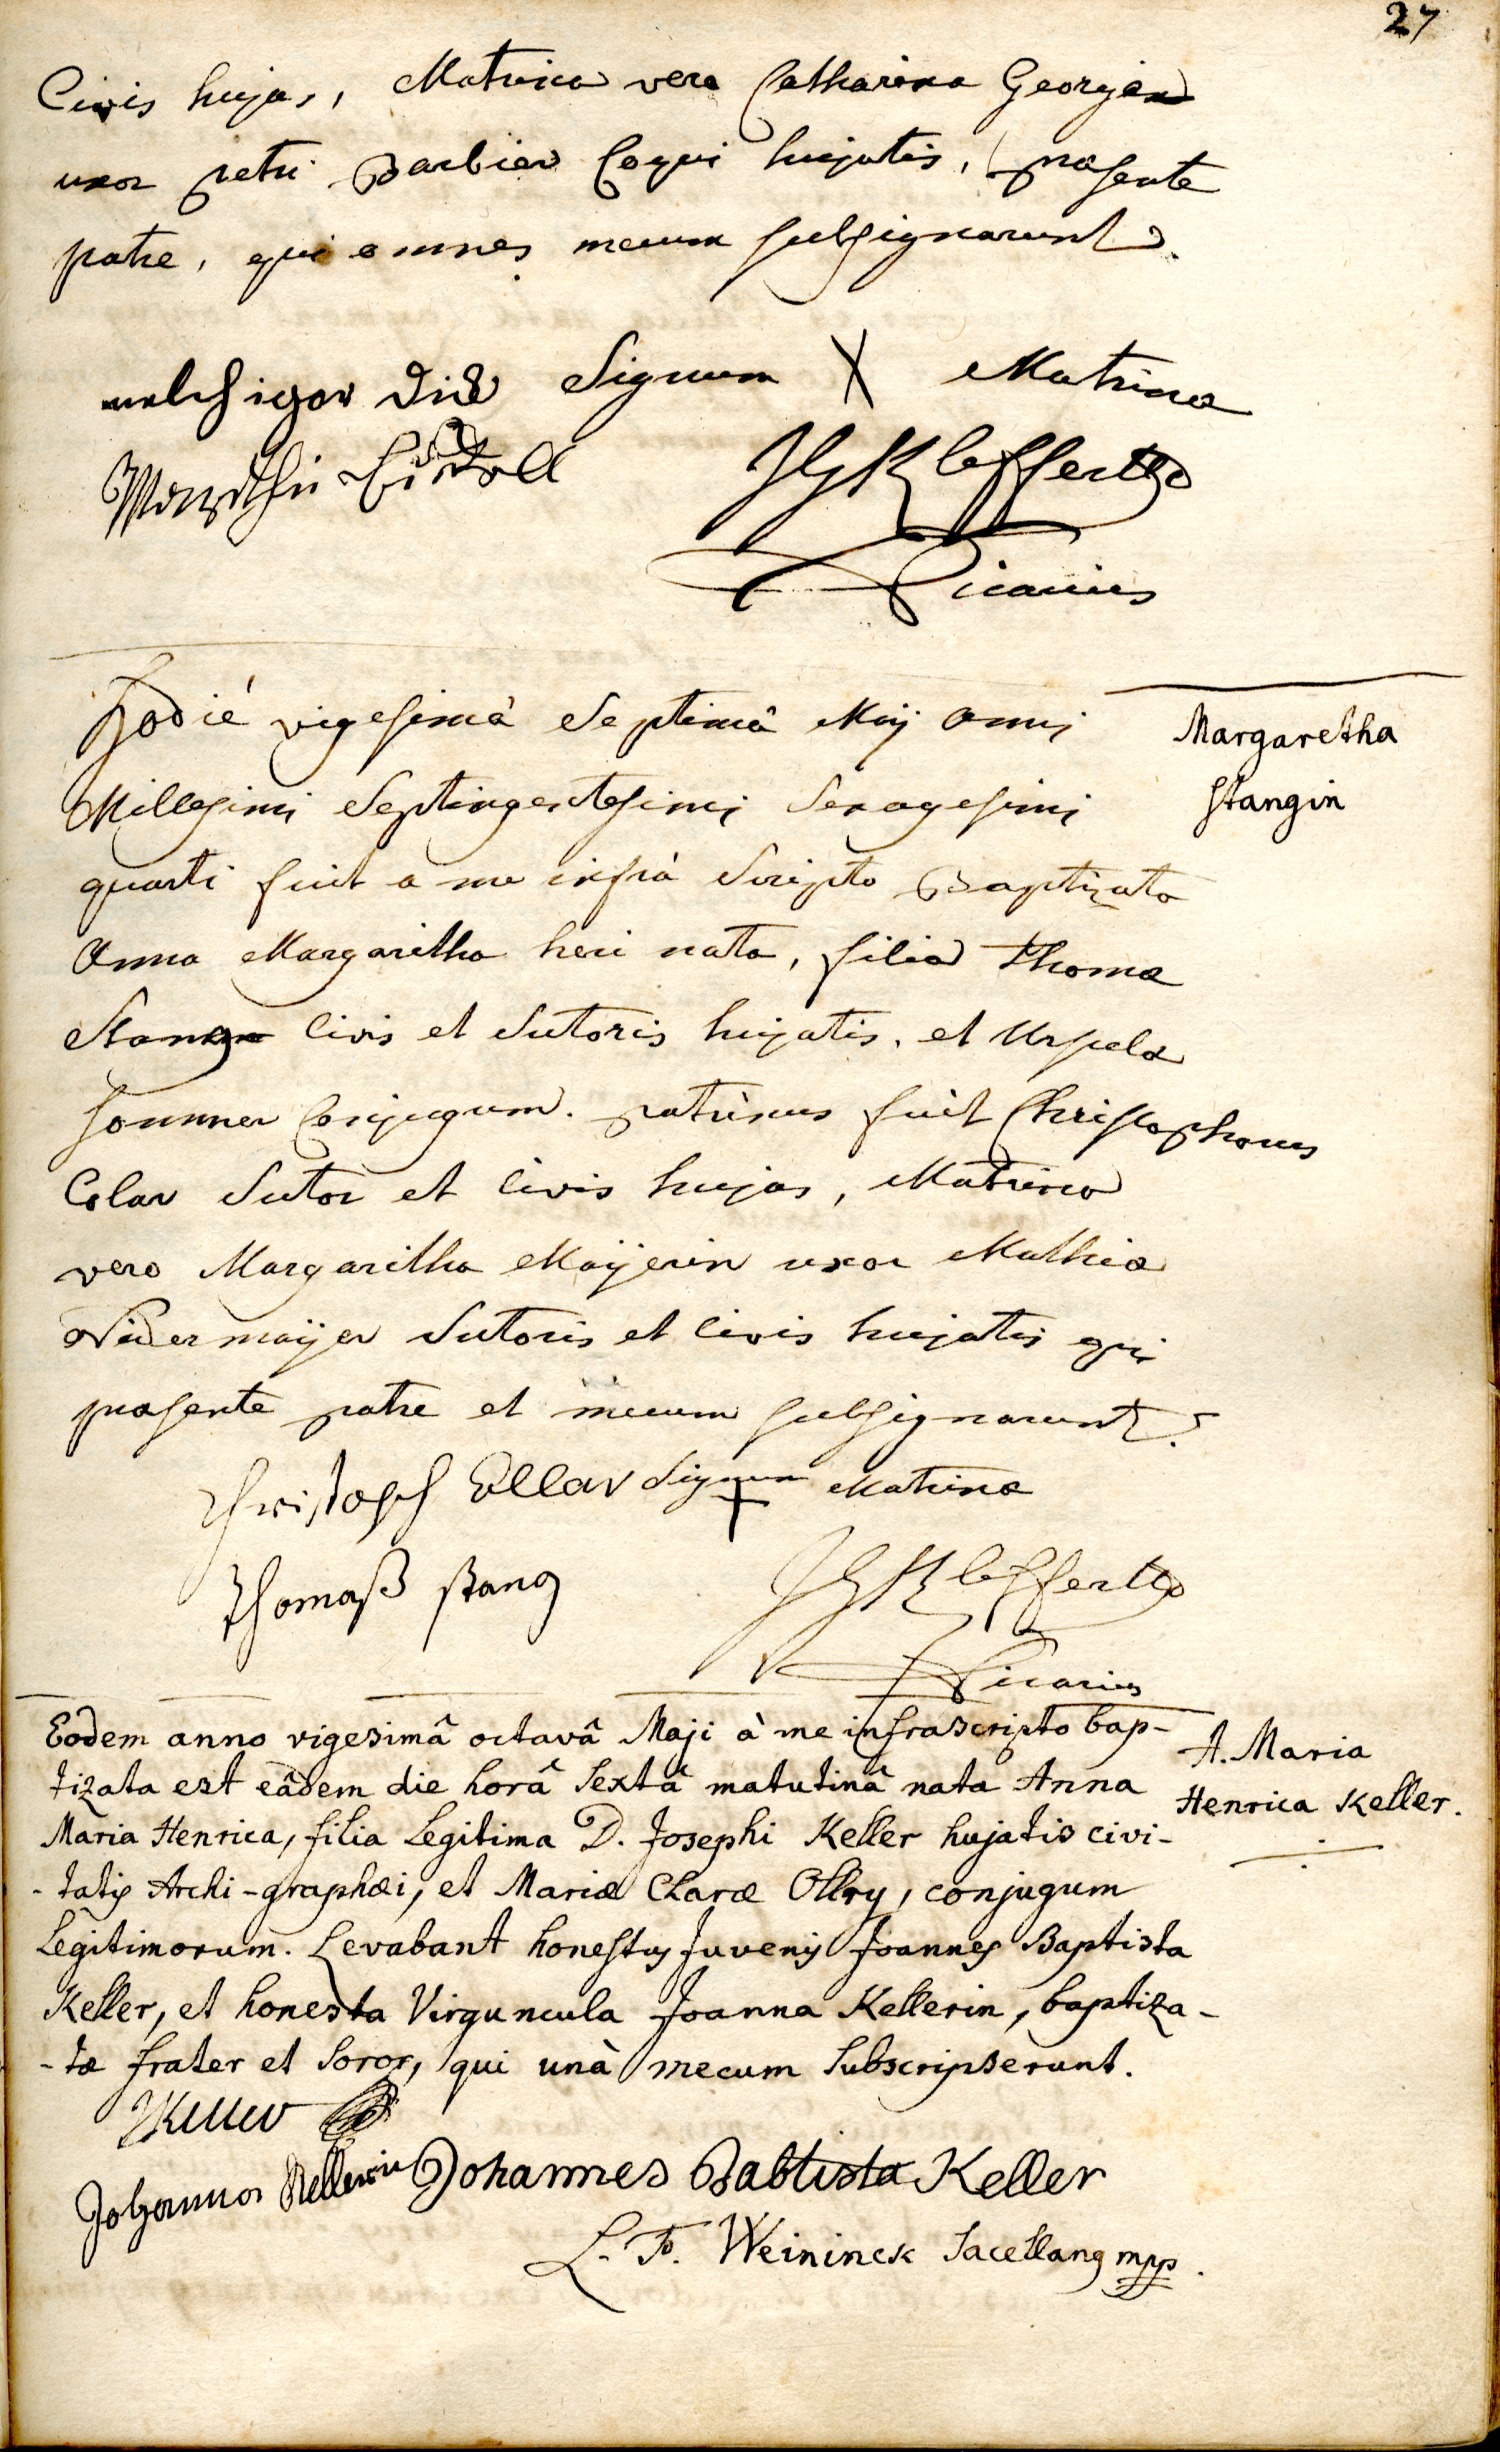 27
Civis hujas, Matrina vero Catharina Georgen
uxor petri Barbier Coqui hujatis, præsente
patre, qui omnes mecum subsignarunt.
melchigor Dick Signum X Matrinæ
JGKleffert
Vicarius
Hodié vigesimâ Septimâ Maij anni
Millesimi Septingentesimi Sexagesimi
quarti fuit a me infrà Scripto Baptizata
Anna Margaritha heri nata, filia Thomæ
Stange Civis et Sutoris hujatis, et Ursulæ
Sommer Conjugum. patrinus fuit Christophorus
Celar Sutor et Civis hujas, Matrina
vero Margaritha Maijerin uxor Mathiæ
Nidermaijer Sutoris et Civis hujatis qui
præsente patre et mecum subsignarunt.
Margaretha
Stangin
Christoph Ellar Signum + Matrinæ
Thomaß stang
JGKleffert
Vicarius
Eodem anno vigesimâ octavâ Maji à me infrascripto bap-
tizata est eâdem die horâ Sextâ matutinâ nata Anna
Maria Henrica, filia Legitima D. Josephi Keller hujatis civi-
-tatis Archi-graphæi, et Mariæ Claræ Ollry, conjugum
Legitimorum. Levabant honestus Juvenis Joannes Baptista
Keller, et honesta Virguncula Joanna Kellerin, baptiza-
-tæ frater et Soror, qui unà mecum Subscripserunt.
A. Maria
Henrica Keller.
JKeller
Johanna Kellerin Johannes Babtista Keller
L. F. Weininck Sacellanus mpp.